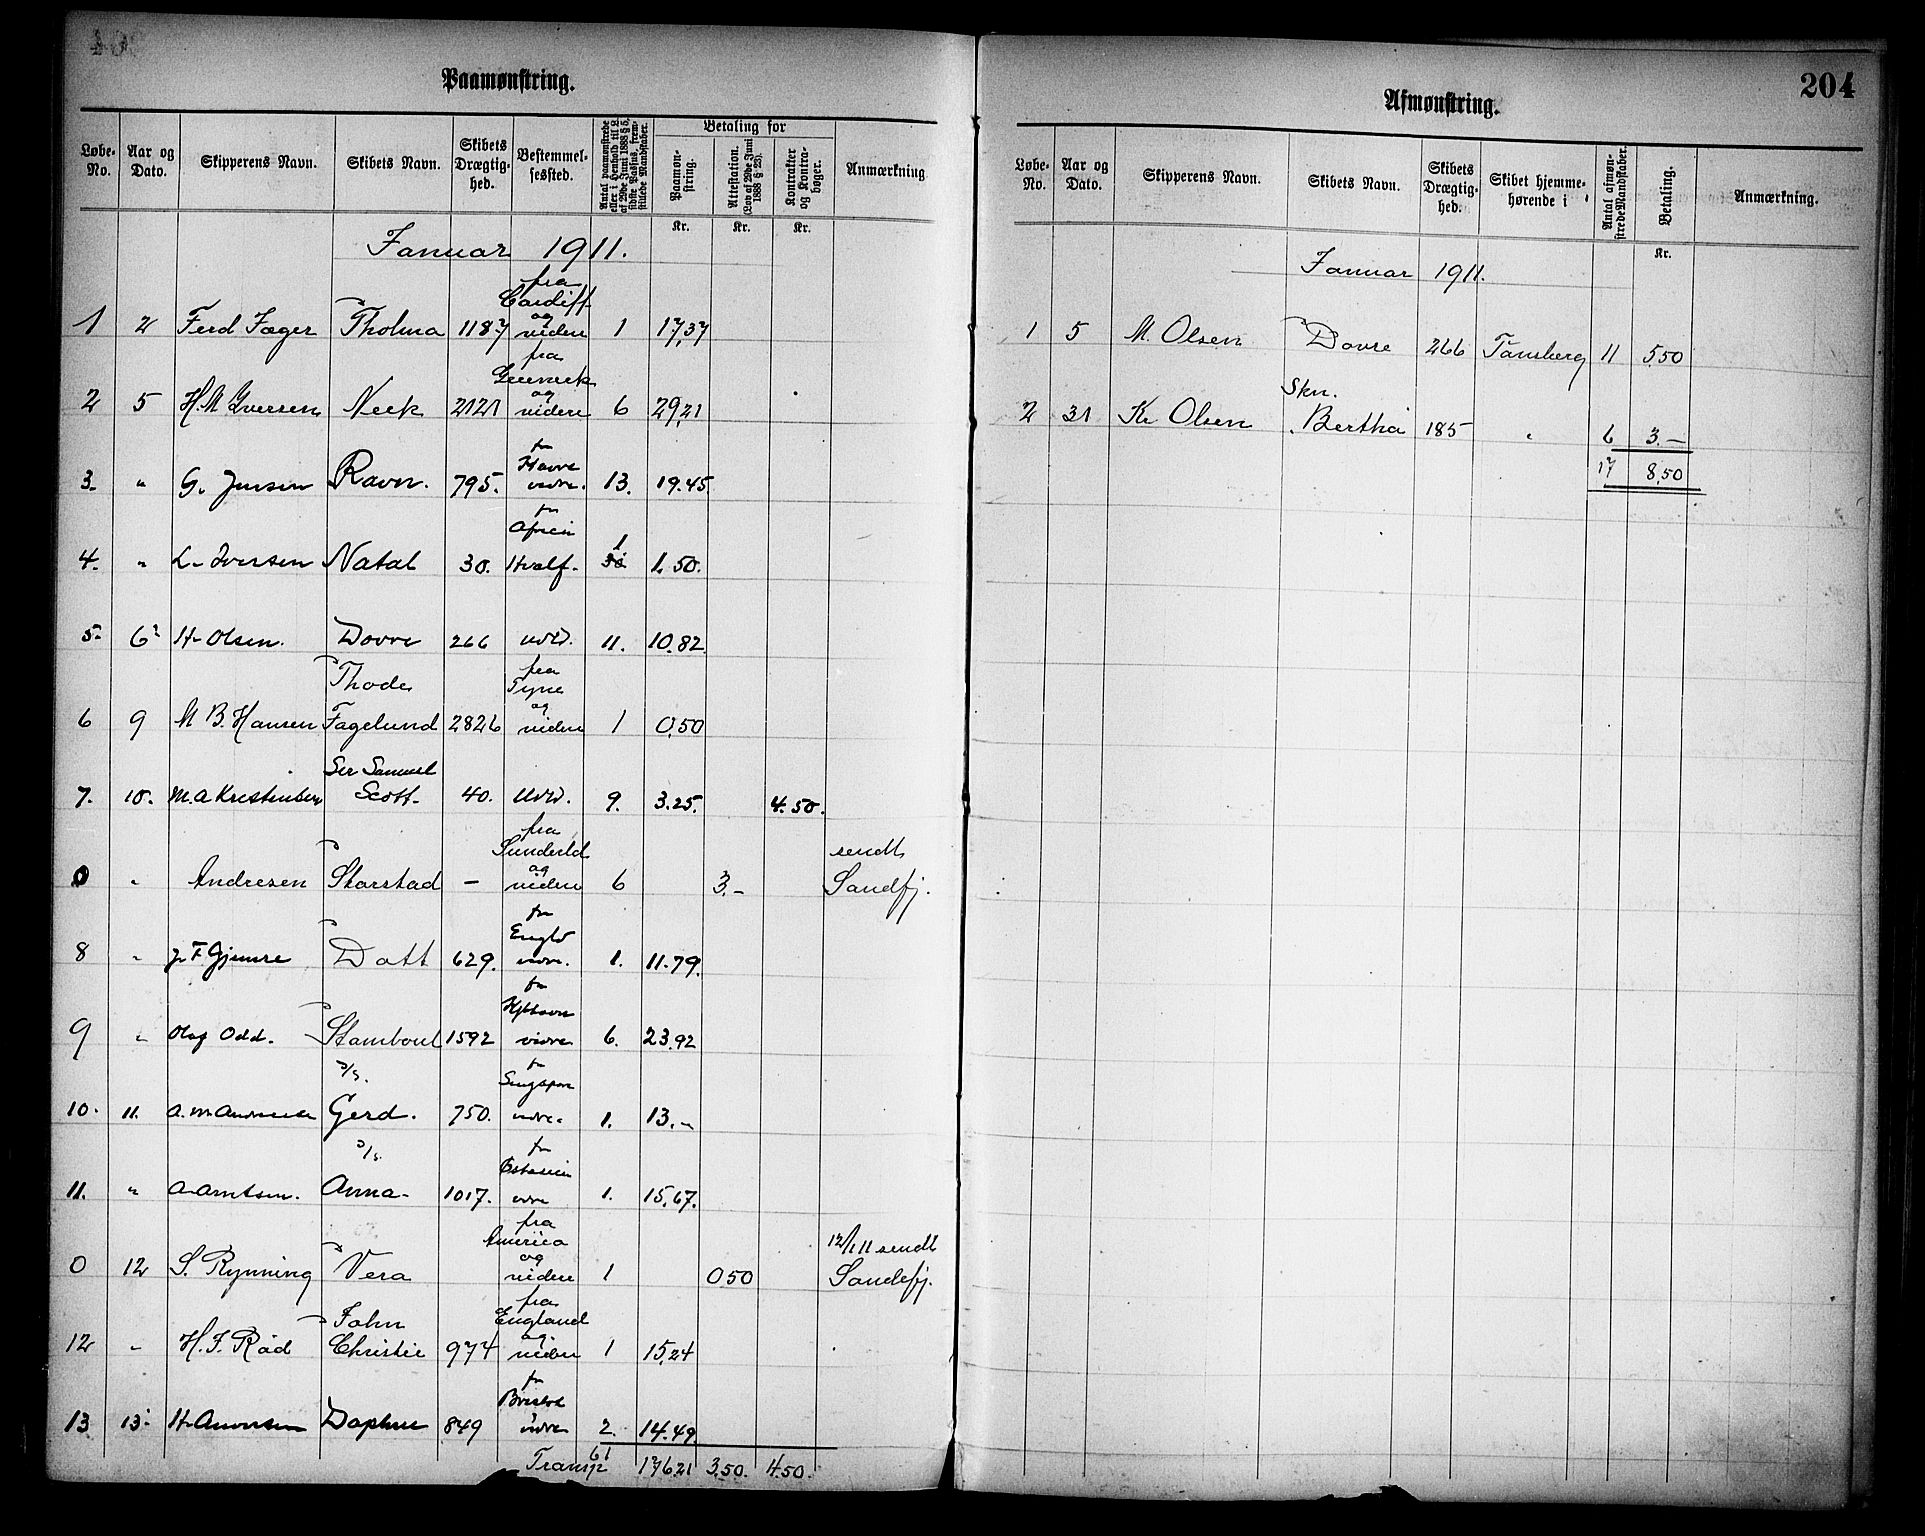 Paamønstring.
Løbe-No. Aar og Dato. Skipperens Navn. Skibets Navn. Skibets Drægtig-hed. Bestemmel-sessted. Antal paamønstrede eller i Henhold til L. af 29de Juni 1888 § 5, sidste Passus, frem-stillede Mandskaber. Betaling for Paamøn-string. Attestation. (Lov af 29de Juni 1888 § 23). Kontrakter og Kontra-bøger. Anmærkning
Kr. Kr. Kr.
Januar 1911.
1 2 Ferd Jæger Tholma 1187 fra Cardiff og videre 1 17,37
2 5 H. M Iversen Neek 2121 fra og videre 6 29,21
3. " G. Jensen Ravn. 795. fr Havre vidre. 13. 19.45.
4. " L. Iversen Natal 30. fr Hvalf. 1 1.50.
5. 6 H. Olsen. Dovre 266 11. 10.82.
6 9 M B. Hansen Thode Fagelund 2826 fra Tyne og videre 1 0,50
7. 10. M. A Kristensen Ser Samuel Scott. 40. 9. 3.25. 4.50.
0 " Andresen Storstad – fra Sunderld og videre 6 3.- sendt Sandfj.
8 " J. F. Gjemre Dott 629. fr Engld vidre. 1. 11.79.
9 " Olaf Odd. Stamboul 1592 fr Kjbhavn vidre 6. 23.92
10. 11. A. M Andresen S/S. Gerd. 750. fr Singapore vidre. 1. 13.-
11. " A. Arntsen. S/S. Anna. 1017. fr Ostasien vidre 1. 15.67.
0 12 S. Rynning Vera fra America og videre 1 050 12/1 11 sendt Sandefj.
12 " H. F. Råd John Christie 974 fra England og. videre 1 15,24
13 13. H. Daphne 849 fr vidre 2. 14.49
Transp 61 176,21 3,50. 4.50.
204
Afmønstring.
Løbe-No. Aar og Dato. Skipperens Navn. Skibets Navn. Skibets Drægtig-hed. Skibet hjemme-hørende i Antal afmøn-strede Mandskaber. Betaling. Anmærkning.
Kr.
Januar 1911.
1 5 M. Olsen Dovre 266 Tønsberg 11 5.50
2 31 Kr Olsen Skn. Bertha 185 " 6 3.–
17 8,50